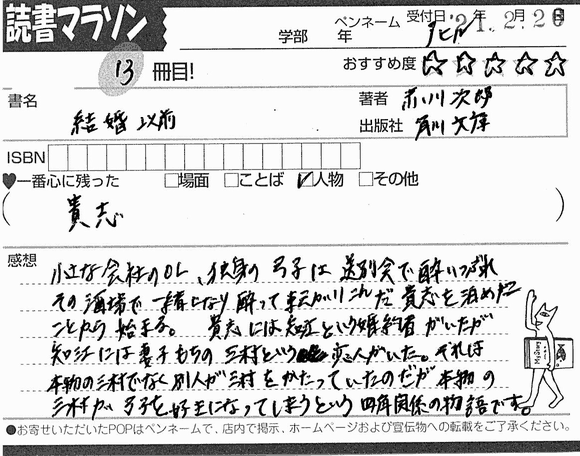 読書マラソン
13 冊目!
学部 年
ペンネーム
受付日 '21年 2月 2 日
おすすめ度 ☆☆☆☆☆
書名
結婚以前
著者 赤川次郎
出版社 角川文庫
ISBN
♥一番心に残った □場面 □ことば ☑人物 □その他
( 貴志 )
感想
小さな会社のOL、独身の弓子は送別会で酔いつぶれ
その酒場で一緒になり酔って転がりこんだ貴志を泊めた
ことから始まる。 貴志には知江という婚約者がいたが
知江には妻子もちの三村という恋人がいた。それは
本物の三村でなく別人が三村をかたっていたのだが本物の
三村が弓子を好きになってしまうという四角関係の物語です。
●お寄せいただいたPOPはペンネームで、店内で掲示、ホームページおよび宣伝物への転載をご了承ください。